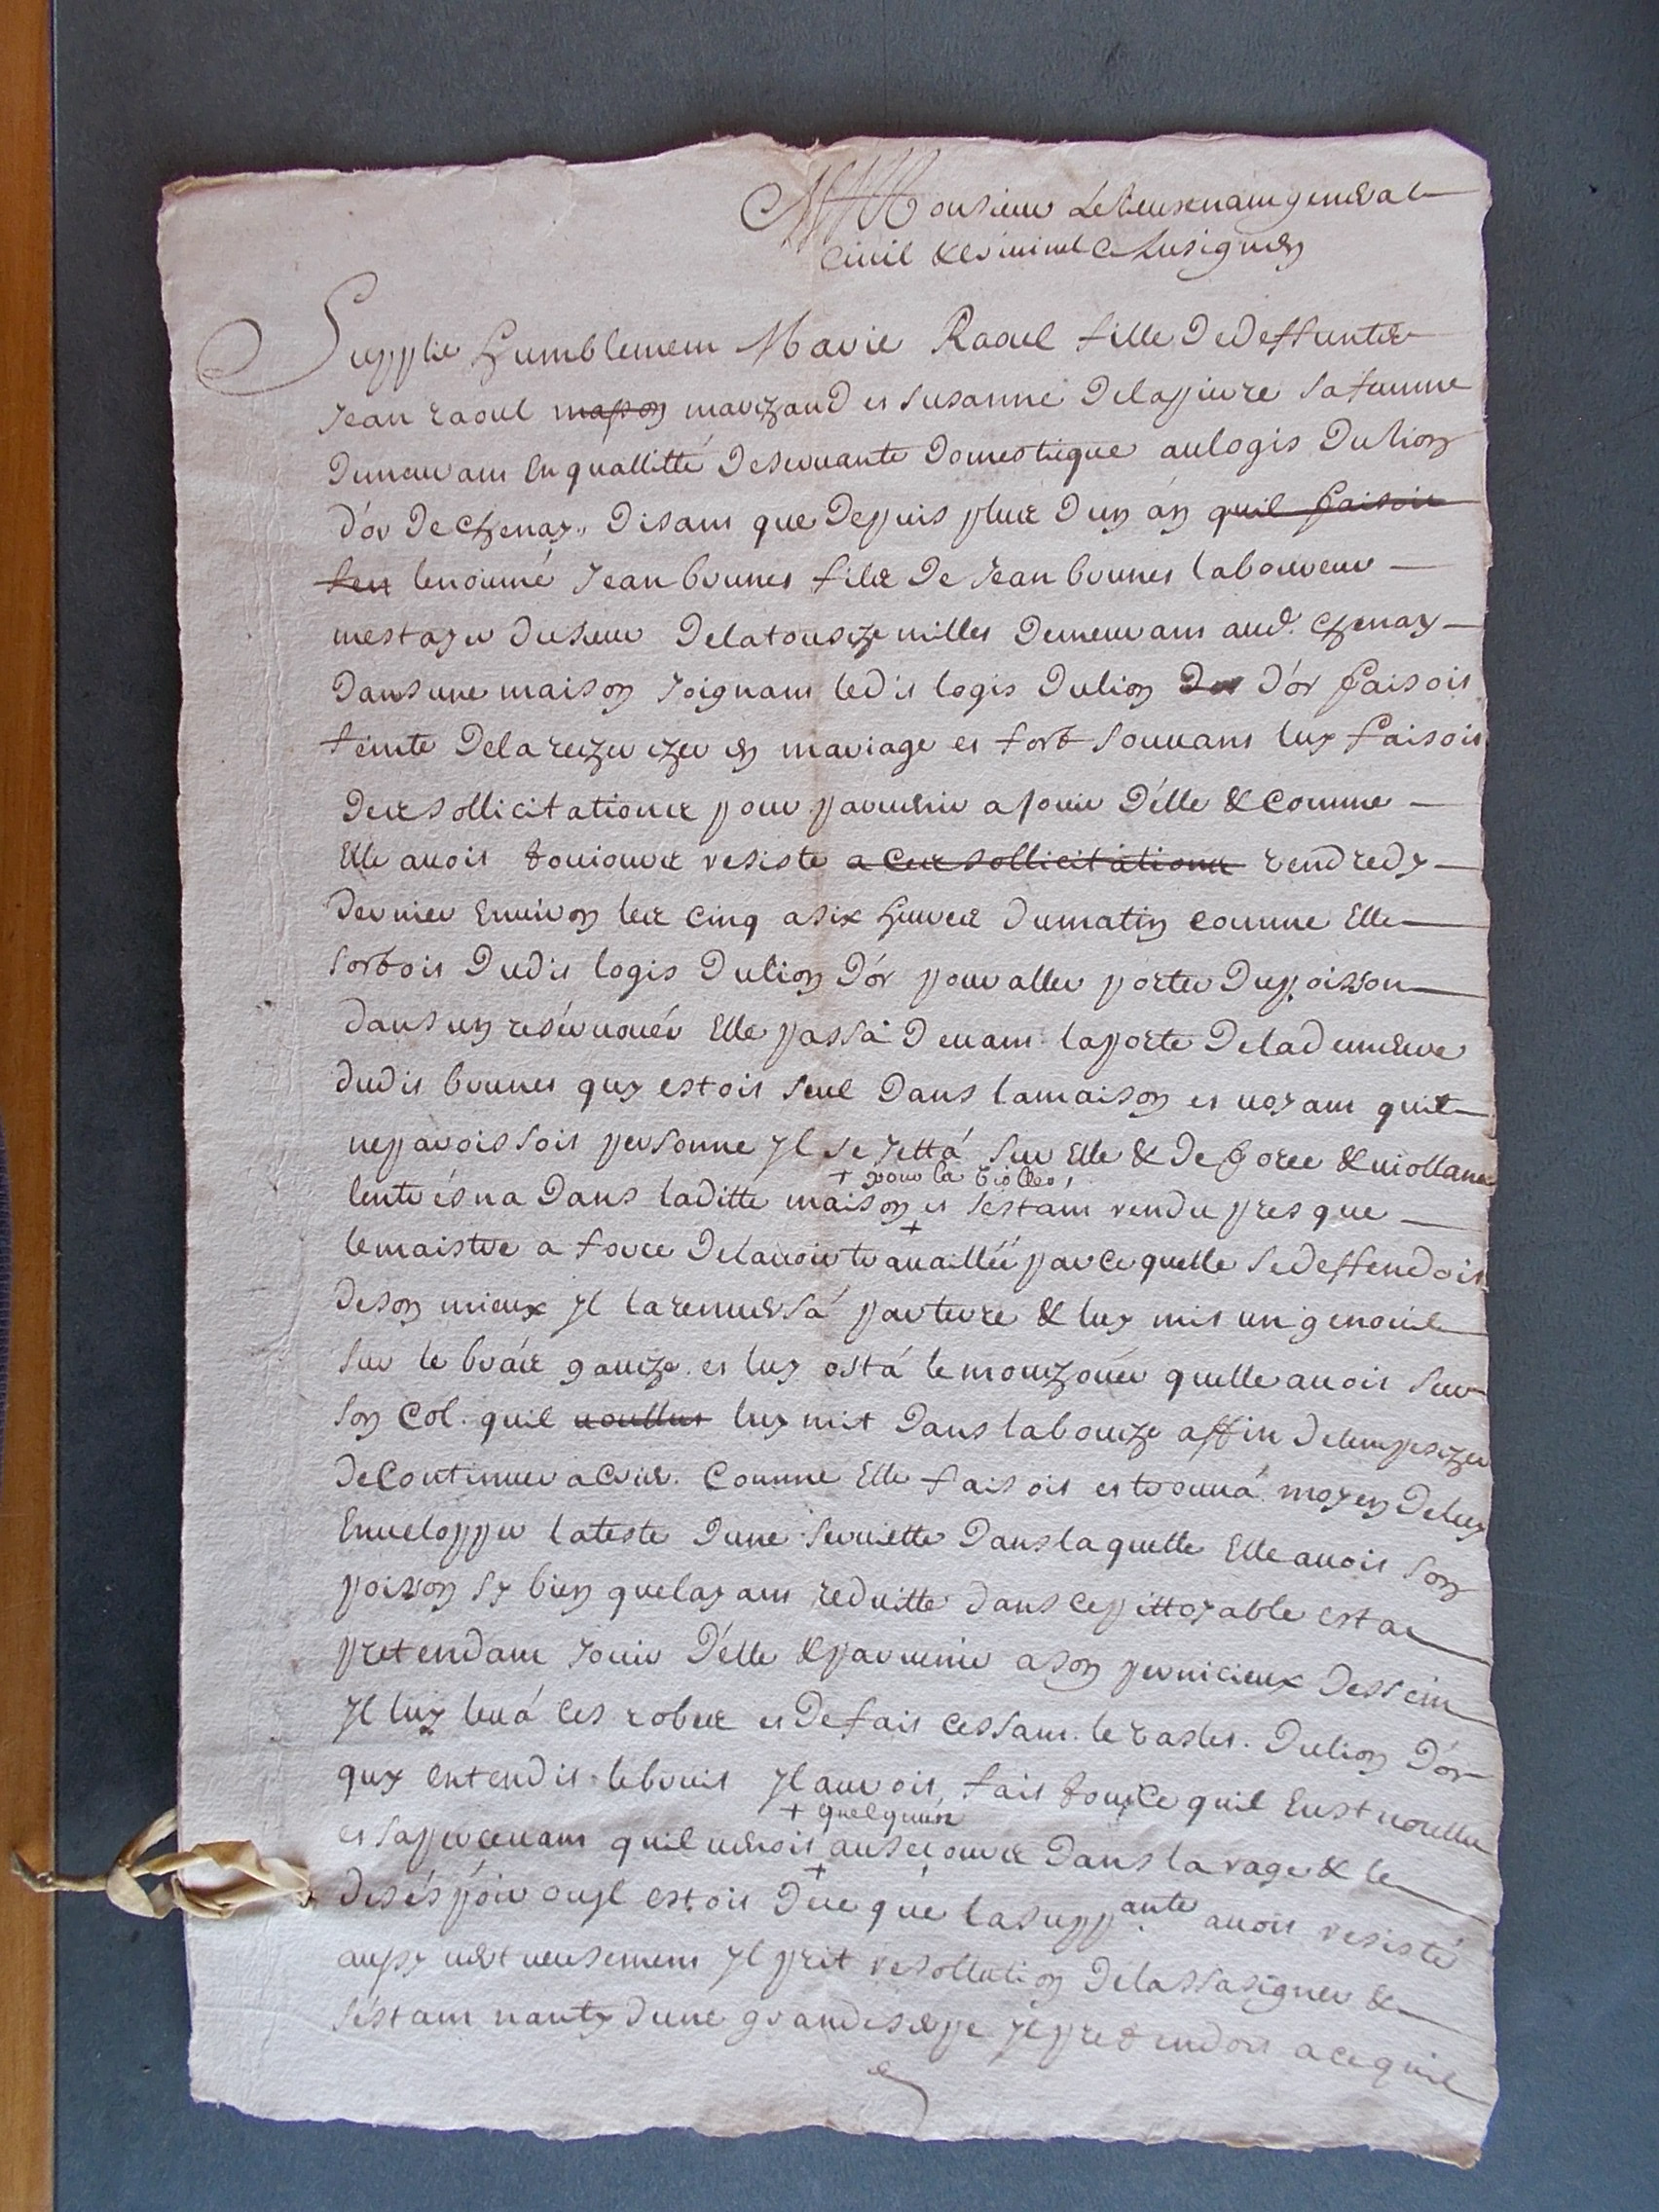 A Monsieur Le Lieutenant general
Civil & Criminel a Lusignen
Supplie humblement Marie Raoul fille de deffunts
Jean raoul masson marchand et Susanne Delapierre sa femme
demeurant En quallitté de servante domestique au logis du lion
d'or de chenay, disant que depuis plus d'un an quil faisoit
feu lenommé Jean brunet fils de Jean brunet laboureur
mestayer du sieur delatousche millet demeurant aud. chenay
dans une maison Joignant ledit logis du lion d'or faisoit
feinte de la rechercher en mariage et fort souuant luy faisoit
des sollicitations pour paruenir a jouir d'elle & comme
Elle auoit toujours resisté a ces sollicitations vendredy
dernier Enuiron les cinq a six heures du matin comme Elle
sortoit dudit logis du lion d'or pour aller porter du poisson
dans un reseruouér Elle passa deuant la porte de la demeure
dudit brunet quy estoit seul dans la maison et uoyant quil
ne paroissoit personne Jl se Jetta sur Elle & de force & uiollance
+ pour la violler,
lentresna dans laditte maison + et s'estant rendu presque
le maistre a force de lauoir trauaillée parce quelle se deffendoit
de son mieux Jl la renuersa par terre & luy mit un genouil
sur le bras gauche et luy osta le mouchouer quelle auoit sur
son col. quil voullut luy mit dans la bouche affin de lempescher
de Continuer a crier. Comme Elle faisoit et trouua moyen de luy
Enuelopper la teste d'une seruiette dans laquelle Elle auoit son
poisson sy bien que layant reduitte dans ce pittoyable estat
pretendant Jouir d'elle & paruenir a son pernicieux dessein
Jl luy leua ces robes et de fait cessant le vaslet du lion d'or
quy entendit le bruit Jl auroit fait tout ce quil Eust uoullu
+ quelquun
et saperceuant quil uenoit + au secours dans la rage & le
deséspoir ou Jl estoit de ce que la suppante auoit resisté
aussy uertueusement Jl prit resollution de lassasigner &
s'estant nanty d'une grande serpe Jl pretendoit a ce quil